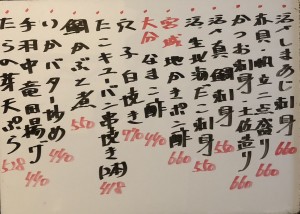 活〆しまあじ刺身 660
赤貝・帆立二点盛り 660
かつお刺身・土佐造り 660
活〆真鯛刺身 550
活生地海だこ刺身 660
宮城地かきポン酢 660
大分なまこ酢 440
穴子白焼き 770
たこキムパ串焼き 418
鯛かぶと煮 550
いかバター炒め 440
手羽中竜田揚げ 440
たらの芽天ぷら 528